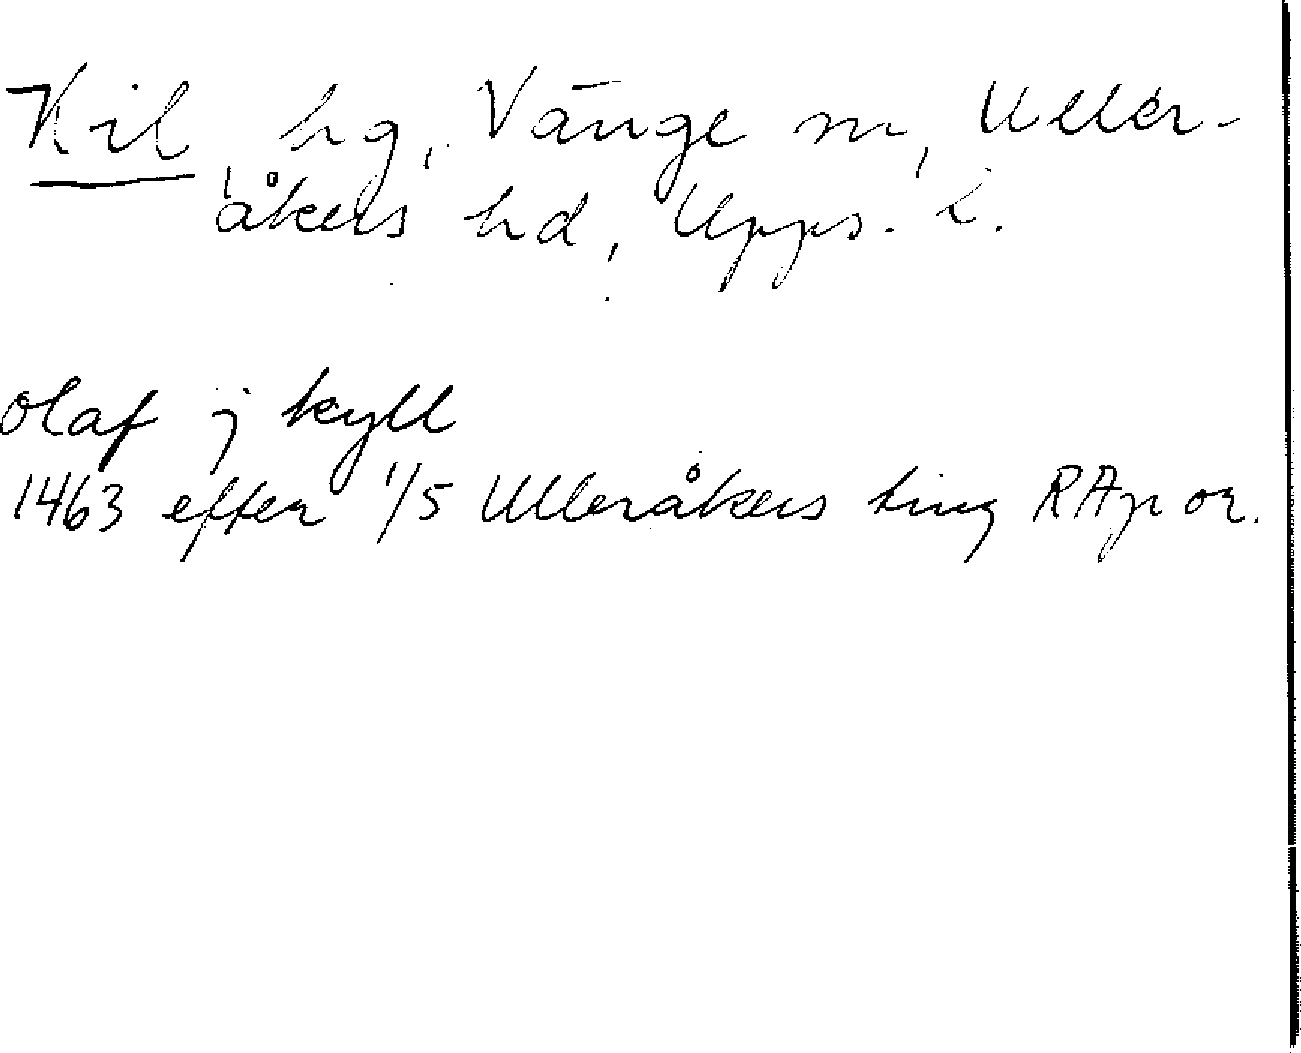 Kil hg, Vänge sn, Uller-
åkers hd, Upps. l.
olaf j kyll
1463 efter 1/5 Ulleråkers ting RAp or.